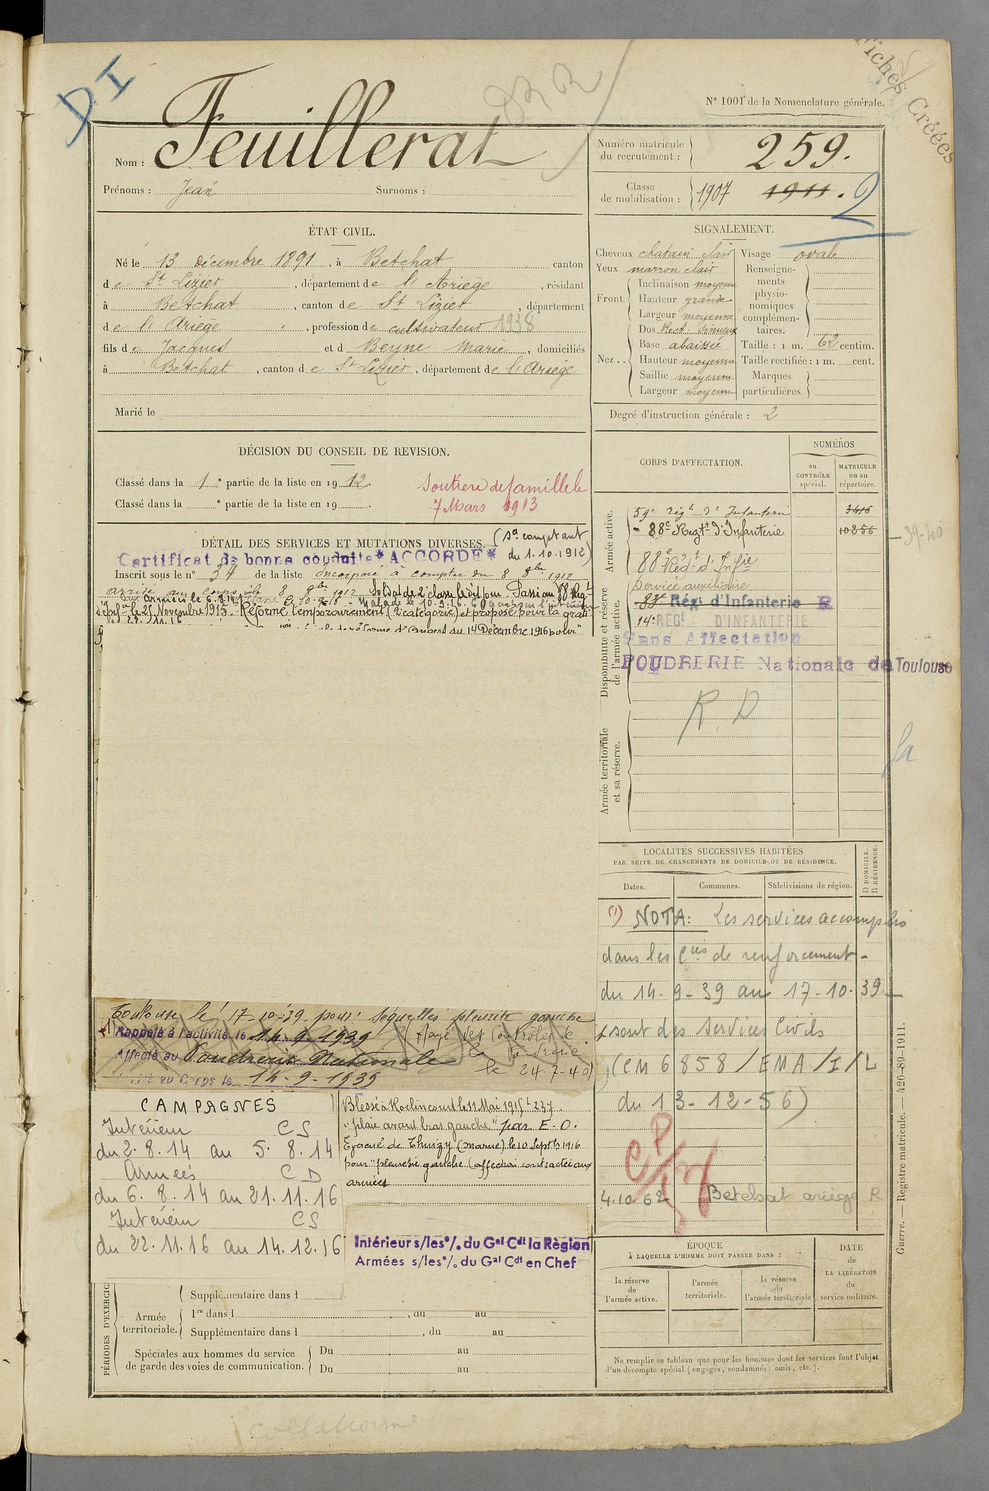 DI
Fiches Créées
N° 1001 de la Nomenclature générale.
Nom : Feuillerat
Prénoms : Jean Surnoms :
Numéro matricule du recrutement : 259.
Classe de mobilisation : 1907 1911. 2
ÉTAT CIVIL.
Né le 13 décembre 1891, à Betchat canton
de St Lizier, département de l'Ariège, résidant
à Betchat, canton de St Lizier, département
de l'Ariège, profession de cultivateur 1938
fils de Jacques et de Beyne Marie, domiciliés
à Betchat, canton de St Lizier, département de l'Ariège
Marié le
SIGNALEMENT.
Cheveux chatain clair
Yeux marron clair
Front. Inclinaison moyenne
Hauteur grande
Largeur moyenne
Nez.. Dos Rect. sinueux
Base abaissée
Hauteur moyenne
Saillie moyenne
Largeur moyenne
Visage ovale
Renseignements physionomiques complémentaires.
Taille : 1 m. 62 centim.
Taille rectifiée : 1 m. cent.
Marques particulières.
Degré d'instruction générale : 2
DÉCISION DU CONSEIL DE REVISION.
Classé dans la 1e partie de la liste en 1912.
Classé dans la e partie de la liste en 19 .
Soutien de famille le
7 Mars 1913
DÉTAIL DES SERVICES ET MUTATIONS DIVERSES.
(Son comptant du 1.10.1912)
Certificat de bonne conduite *ACCORDÉ*
Inscrit sous le n° 34 de la liste Incorporé à compter du 8 8bre 1912
Soldat de 2e classe le dit jour. Passé au 88 Régt
d'Infie le 25 Novembre 1913. Réformé temporairement (2e catégorie) et proposé pour la grat
14 Décembre 1916 pour
CORPS D'AFFECTATION.
NUMÉROS
au CONTRÔLE spécial.
MATRICULE ou au répertoire.
Armée active.
59e Régt d'Infanterie 3416
88e Régt d'Infanterie 10856
39-40
Disponibilité et réserve de l'armée active.
88e Régt d'Infie
Service auxiliaire
Régt d'Infanterie R
14e RÉGt D'INFANTERIE
Sans Affectation
POUDRERIE Nationale de Toulouse
Armée territoriale et sa réserve.
R.D
LOCALITÉS SUCCESSIVES HABITÉES
PAR SUITE DE CHANGEMENTS DE DOMICILE OU DE RÉSIDENCE.
Dates. Communes. Subdivisions de région. D. DOMICILE. R. RÉSIDENCE.
(1) NOTA: Les services accomplis
dans les Cies de renforcement
du 14-9-39 au 17-10-39
sont des Services Civils
(CM 6858/EMA/I/L
du 13-12-56)
4.10.62 Betchat ariège R
Toulouse le 17-10-39 pour séquelles pleurite gauche
Rappelé à l'activité le 14-9-1939
Rayé des Contrôles de
Affecté au Poudrerie Nationale la Poudrerie
au Corps le 14-9-1939 le 24-7-40
CAMPAGNES
Intérieur CS
du 2.8.14 au 5.8.14
Armées CD
du 6.8.14 au 21.11.16
Intérieur CS
du 22.11.16 au 14.12.16
Blessé à Roclincourt le 11 Mai 1915
"plaie avant bras gauche" par E.O.
Evacué de Thuizy (Marne) le 10 Septbre 1916
pour "pleurésie gauche (affection contractée aux
armées
Intérieur s/les % du Gal Cdt la Région
Armées s/les % du Gal Cdt en Chef
PÉRIODES D'EXERCICE
Supplémentaire dans l
Armée territoriale. 1re dans l , du au
Supplémentaire dans l , du au
Spéciales aux hommes du service de garde des voies de communication. Du au
Du au
ÉPOQUE
À LAQUELLE L'HOMME DOIT PASSER DANS :
la réserve de l'armée active.
l'armée territoriale.
la réserve de l'armée territoriale
DATE de LA LIBÉRATION du service militaire.
Ne remplir ce tableau que pour les hommes dont les services font l'objet
d'un décompte spécial (engagés, condamnés, omis, etc.).
Guerre. — Registre matricule. — 426-89-1911.